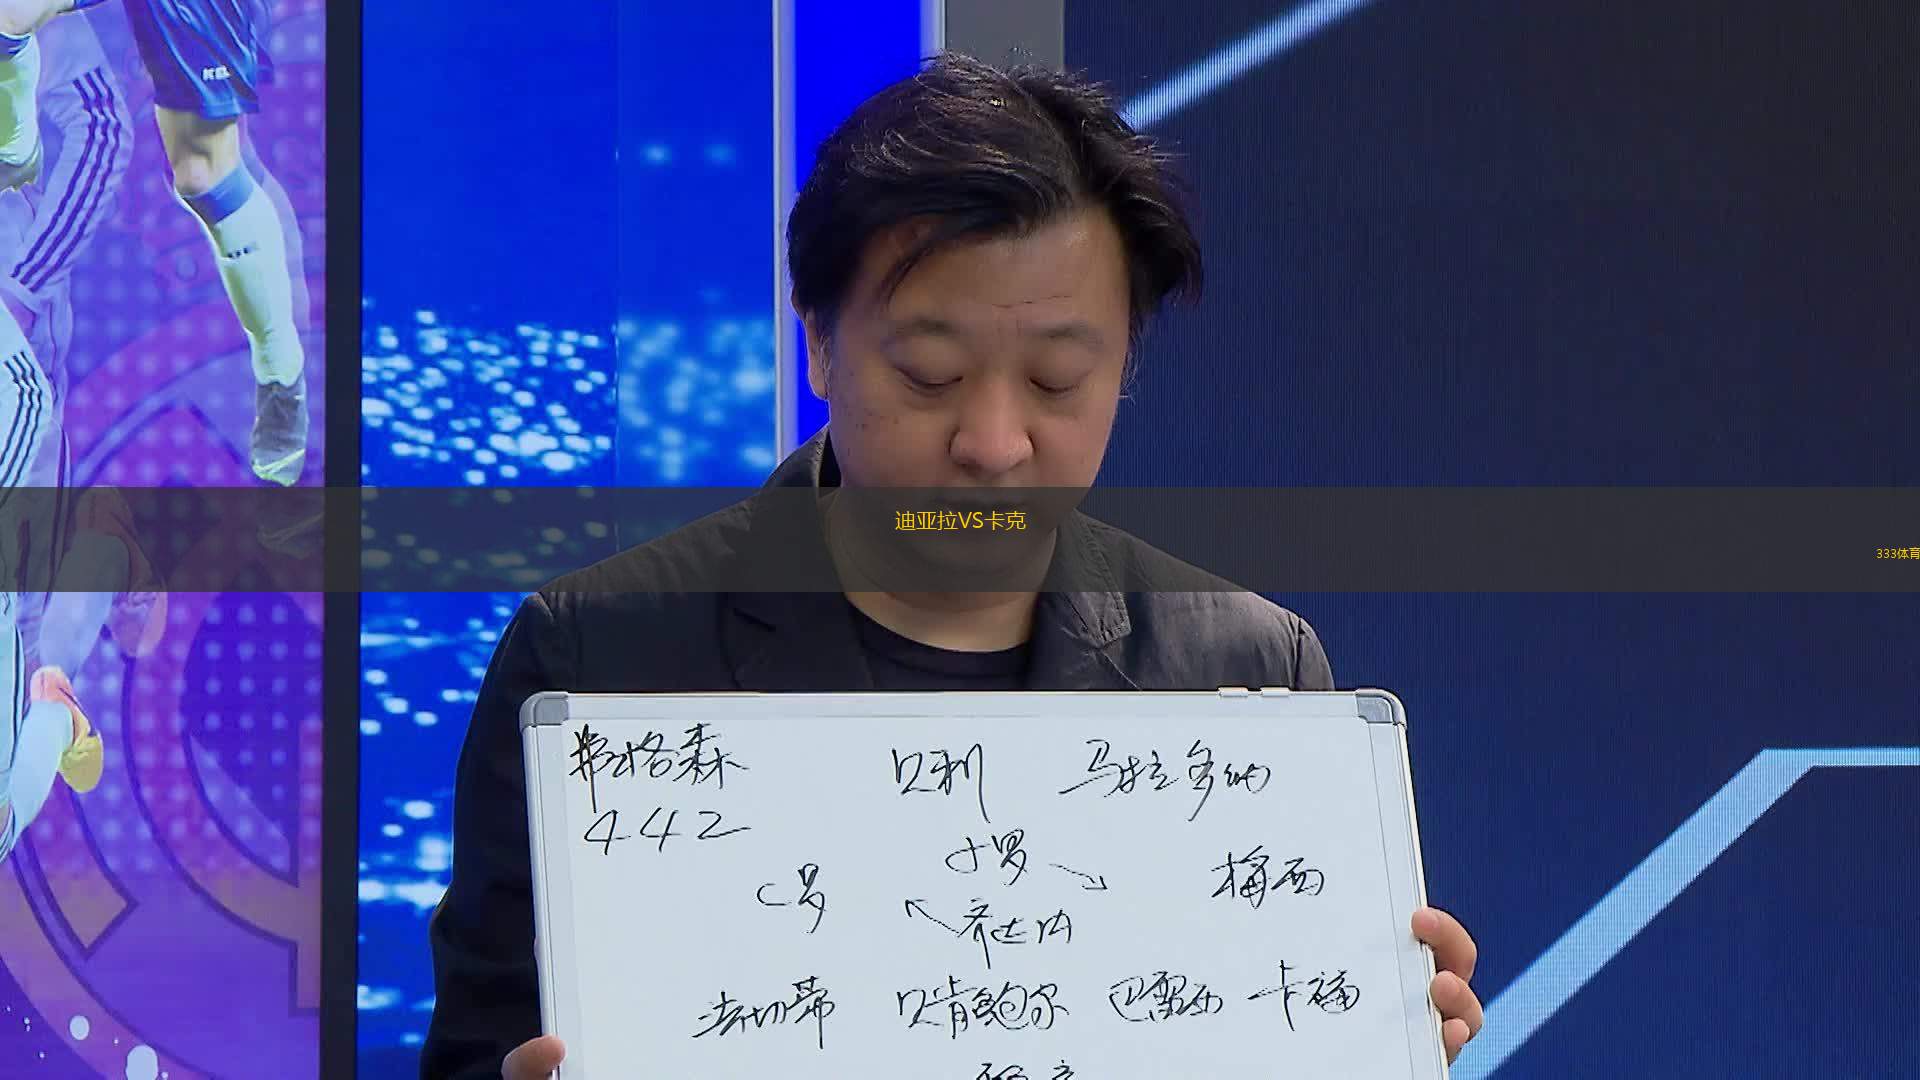 迪亚拉VS卡克
333体育
弗格森 贝利 马拉多纳
442
小罗
C罗 梅西
齐达内
法切蒂 贝肯鲍尔 巴雷西 卡福